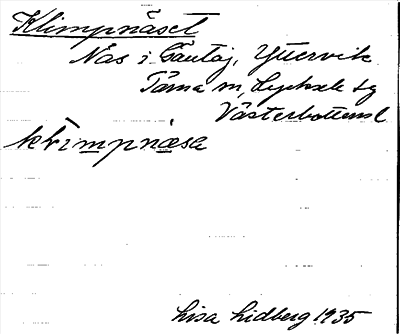 Klimpnäset
Näs i Gäutaj, Yttervik
Tärna sn, Lycksele tg
Västerbottensl
klimpnæsa
Lisa Lidberg 1935